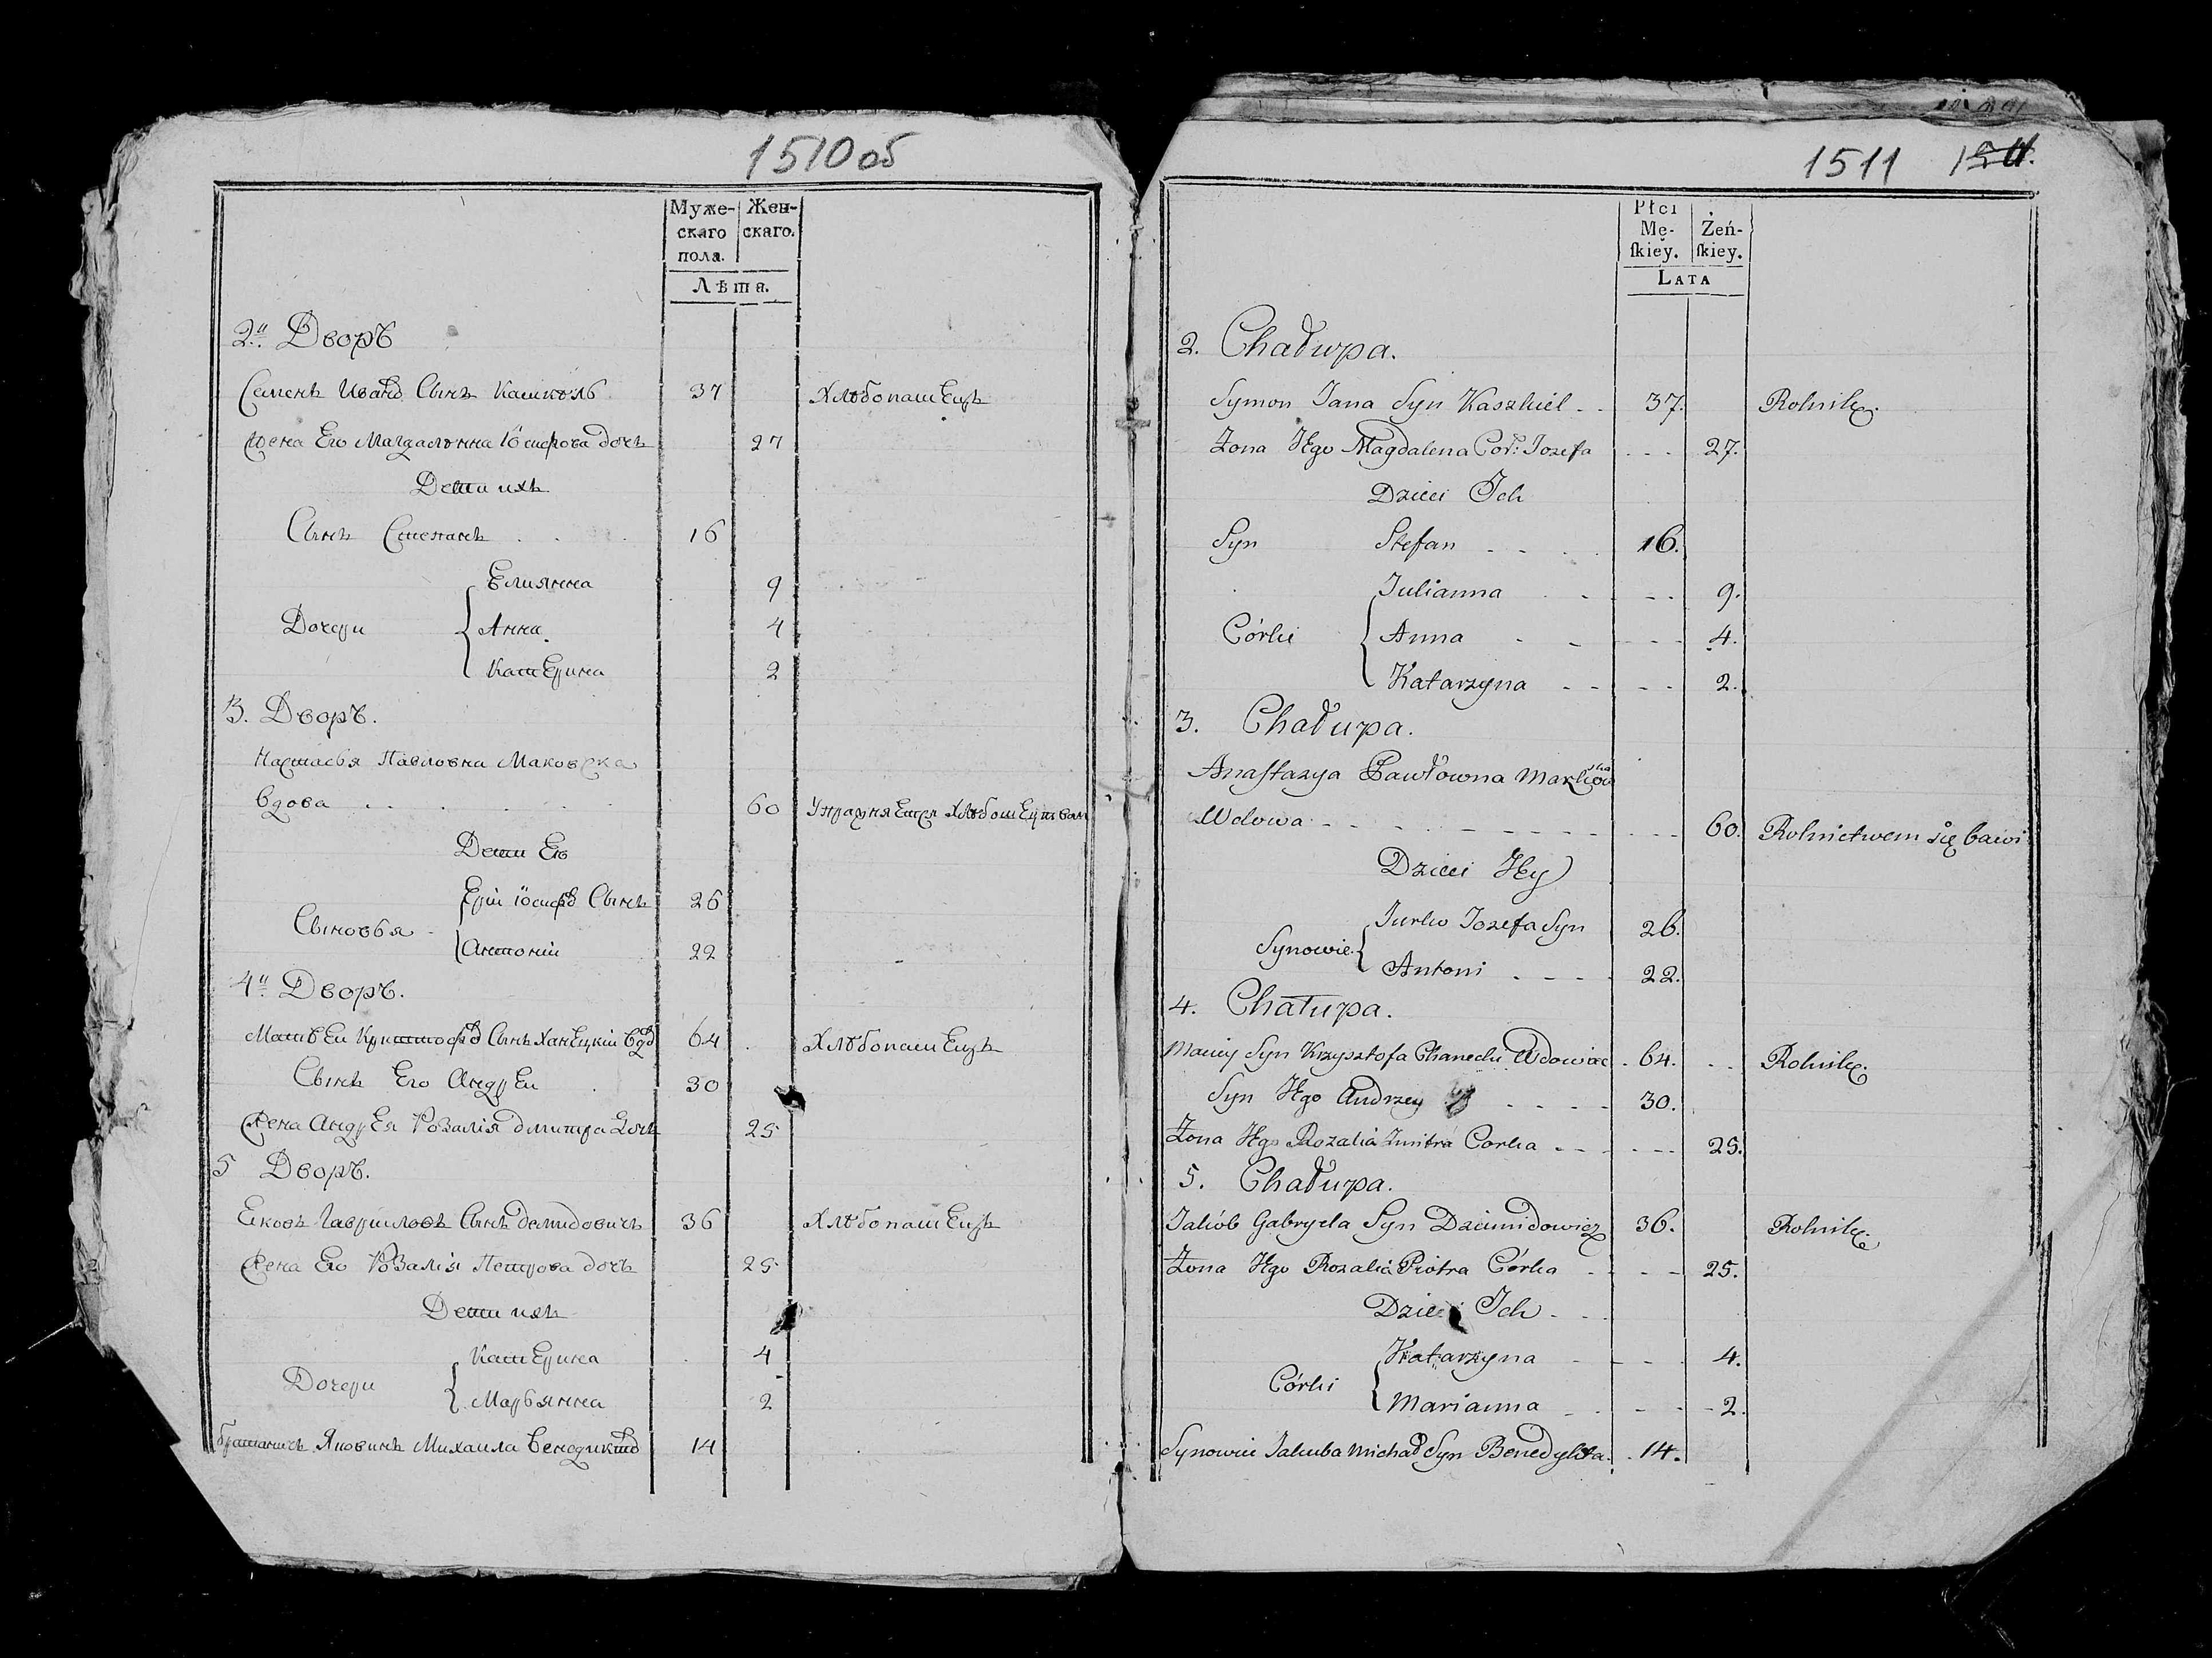 1510 об
Муже- Жен-
скаго скаго.
пола.
Лѣта.
2й Дворъ
Семенъ Иванов Сынъ Кашкѣль 37 Хлѣбопашецъ
Жена Его Магдалѣнна Іосифова дочъ 27
Дети ихъ
Сынъ Степанъ 16
Елиянна 9
Дочери Анна 4
Катерина 2
3. Дворъ.
Настасья Павловна Маковска
вдова 60 Упражняется Хлѣбопашествам
Дети Ею
Ерій Іосифов Сынъ 26
Сыновья
Антоній 22
4й Дворъ.
Матвей Криштофов Сынъ Ханецкій вдов 64 Хлѣбопашецъ
Сынъ Его Андрей 30
Жена Андрея Розалія Дмитра дочъ 25
5 Дворъ.
Яковъ Гавриловъ Сынъ Демидовичъ 36 Хлѣбопашецъ
Жена Его Розалія Петрова дочъ 25
Дети ихъ
Катерина 4
Дочери
Марьянна 2
братаничъ Яковинъ Михаила Бенедиктов 14
1511
Płci
Mę- Żeń-
ſkiéy. ſkiey.
LATA
2. Chałupa.
Symon Jana Syn Kaszkiel 37. Rolnik.
Żona Jego Magdalena Cor: Jozefa 27.
Dzieci Ich
Syn Stefan 16.
Julianna 9.
Córki Anna 4.
Katarzyna 2.
3. Chałupa.
Anaſtazya Pawłowna Markowska
Wdowa 60. Rolnictwem się bawi
Dzieci Jey
Jurko Jozefa Syn 26.
Synowie
Antoni 22.
4. Chałupa.
Maciey Syn Krzysztofa Chanecki Wdowiec 64. Rolnik.
Syn Jego Andrzey 30.
Żona Jego Rozalia Dmitra Corka 25.
5. Chałupa.
Jakób Gabryela Syn Dziemidowicz 36. Rolnik.
Żona Jego Rozalia Piotra Córka 25.
Dzieci Ich
Katarzyna 4.
Córki
Marianna 2.
Synowiec Jakuba Michał Syn Benedykta 14.